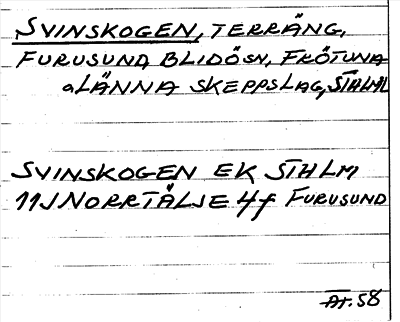 SVINSKOGEN, TERRÄNG,
FURUSUND, BLIDÖSN, FRÖTUNA
o LÄNNA SKEPPSLAG, STHLML
SVINSKOGEN EK STHLM
11J NORRTÄLJE 4f FURUSUND
Ar. 58